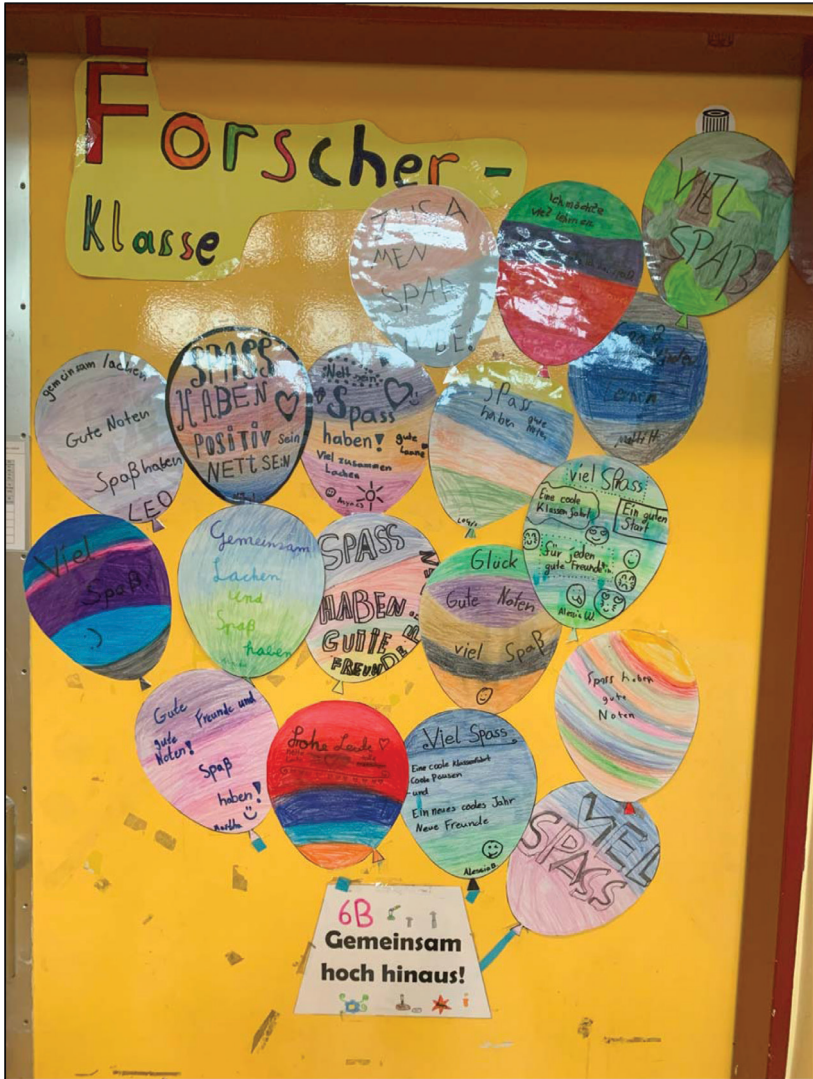 Forscher-
Klasse
ZUSA
MEN
SPAß
Ich möchte
viel lehrnen
VIEL
SPAß
gemeinsam lachen
Gute Noten
Spaß haben
LEO
SPASS
HABEN
POSITIV sein
NETT SEIN
Nett sein
Spass
haben!
gute
Laune
Viel zusammen
Lachen
Spass
haben
gute
Noten
viel Spass
Eine coole
Klassenfahrt
Ein guten
Start
für jeden
gute Freunde*in.
Alessia W.
Viel
Spaß!
Gemeinsam
Lachen
und
Spaß
haben
SPASS
HABEN
GUTE
FREUNDE
Glück
Gute Noten
viel Spaß
Spass haben
gute
Noten
Gute Freunde und
gute
Noten!
Spaß
haben!
Frohe Leute
Viel Spass
Eine coole Klassenfahrt
Coole Pausen
und
Ein neues cooles Jahr
Neue Freunde
Alessio B
VIEL
SPASS
6B
Gemeinsam
hoch hinaus!